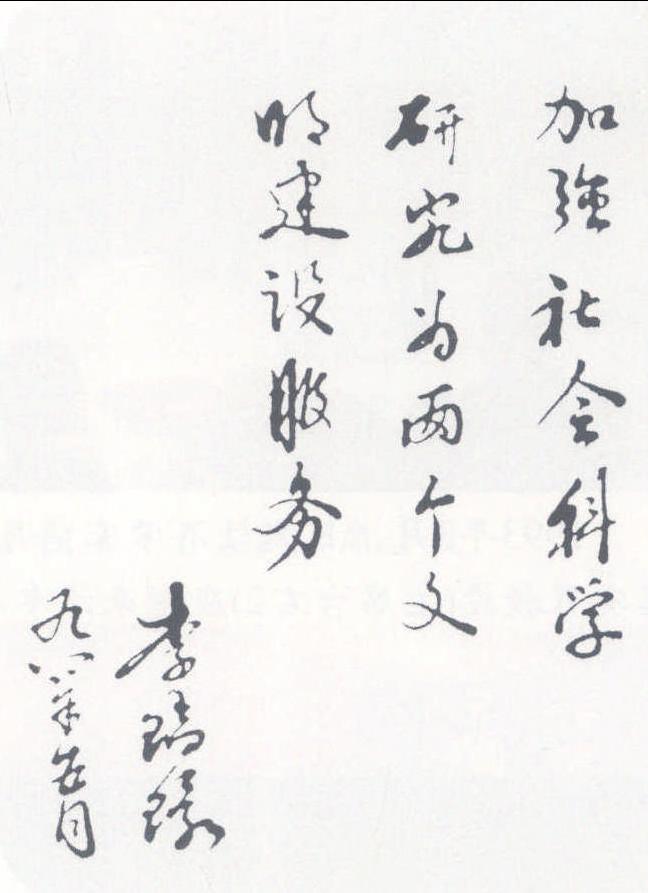 加強社会科学
研究为两个文
明建设服务
李瑞環
九八年五月